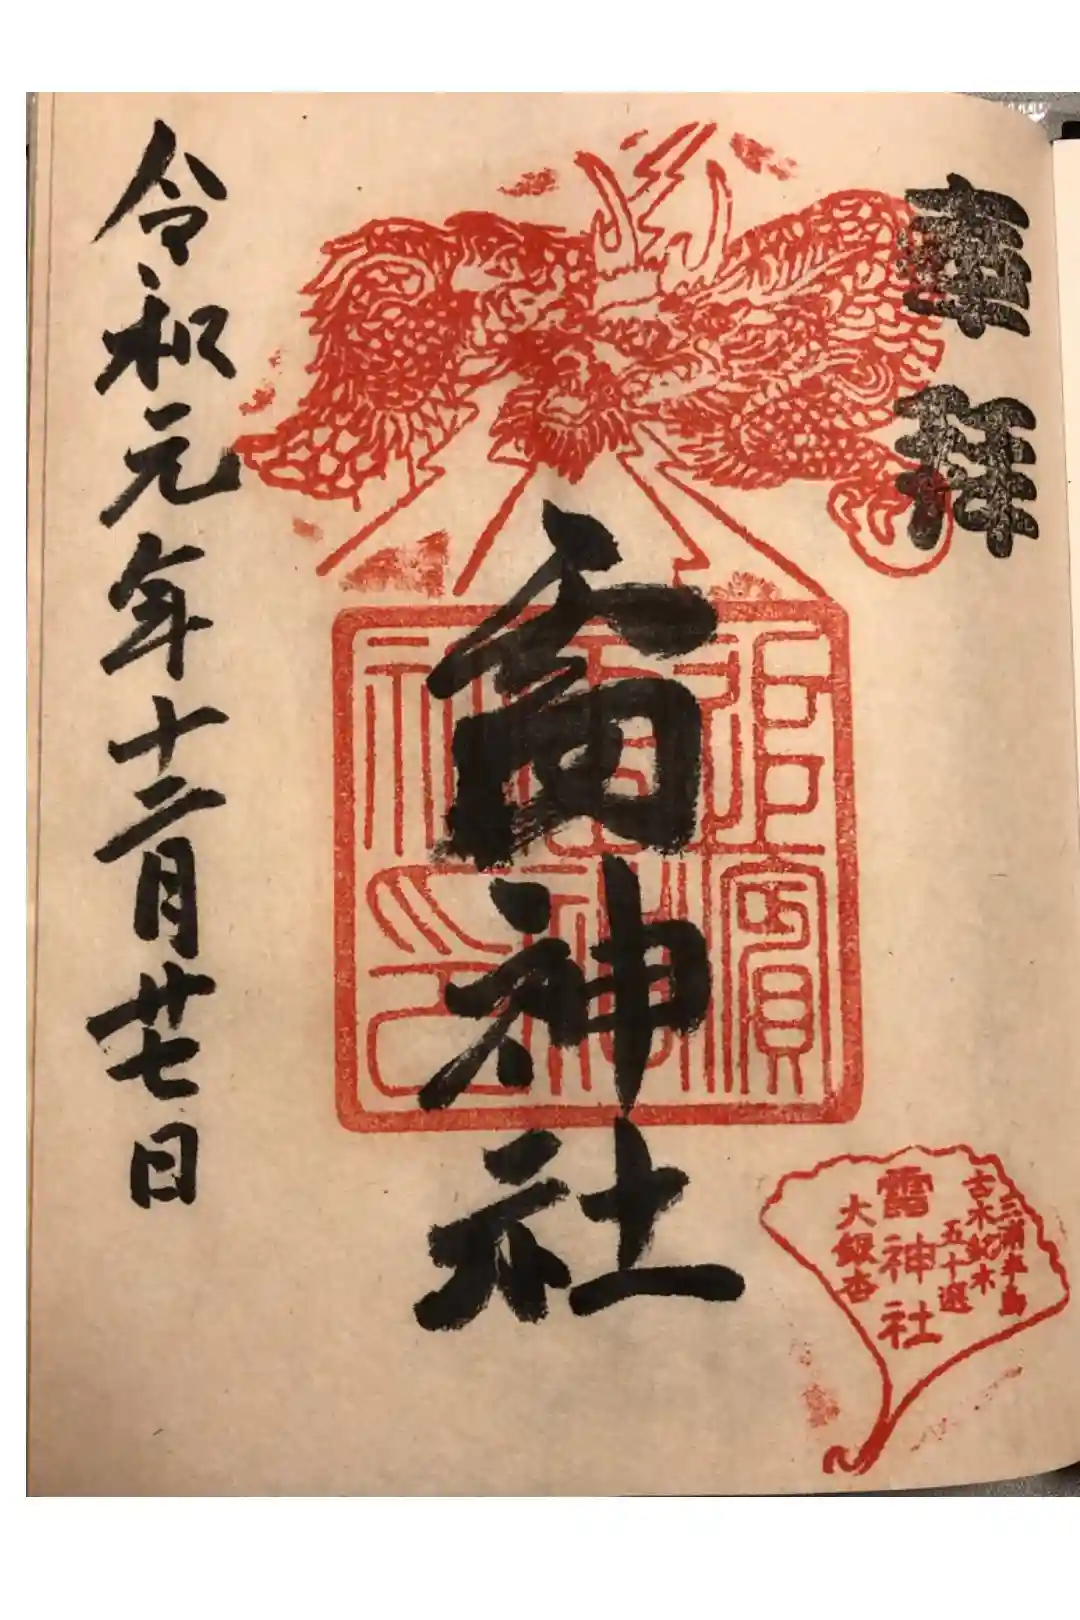 奉拝
雷神社
令和元年十二月廿七日
追濱
雷神
社印
三浦半島
古木銘木
五十選
雷神社
大銀杏